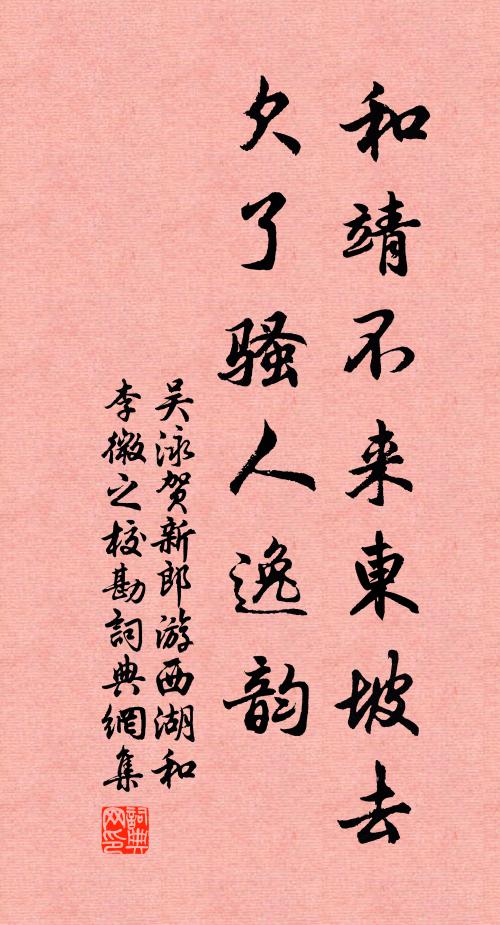 和靖不来東坡去
欠了骚人逸韵
吴泳贺新郎游西湖和
李微之校勘詞典網集
詞典
网印